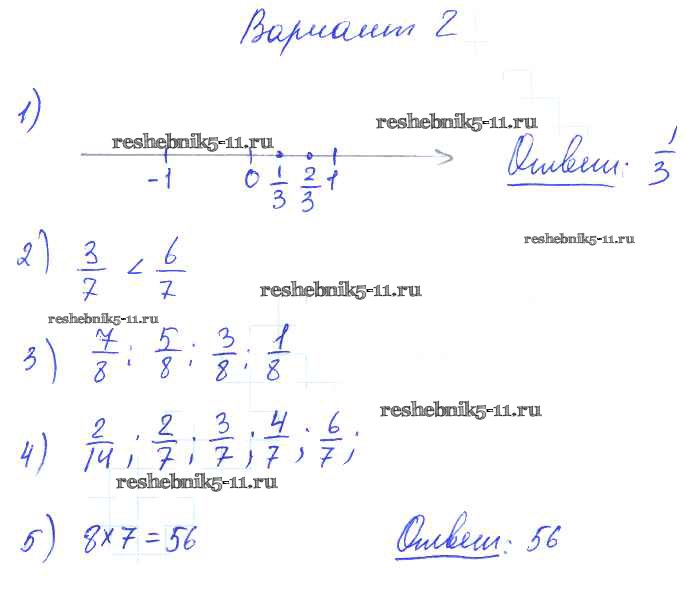 Вариант 2
reshebnik5-11.ru
1)
reshebnik5-11.ru
-1 0 1/3 2/3 1
Ответ: 1/3
reshebnik5-11.ru
2) 3/7 < 6/7
reshebnik5-11.ru
reshebnik5-11.ru
3) 7/8; 5/8; 3/8; 1/8
reshebnik5-11.ru
4) 2/14; 2/7; 3/7; 4/7; 6/7;
reshebnik5-11.ru
5) 8×7=56 Ответ: 56